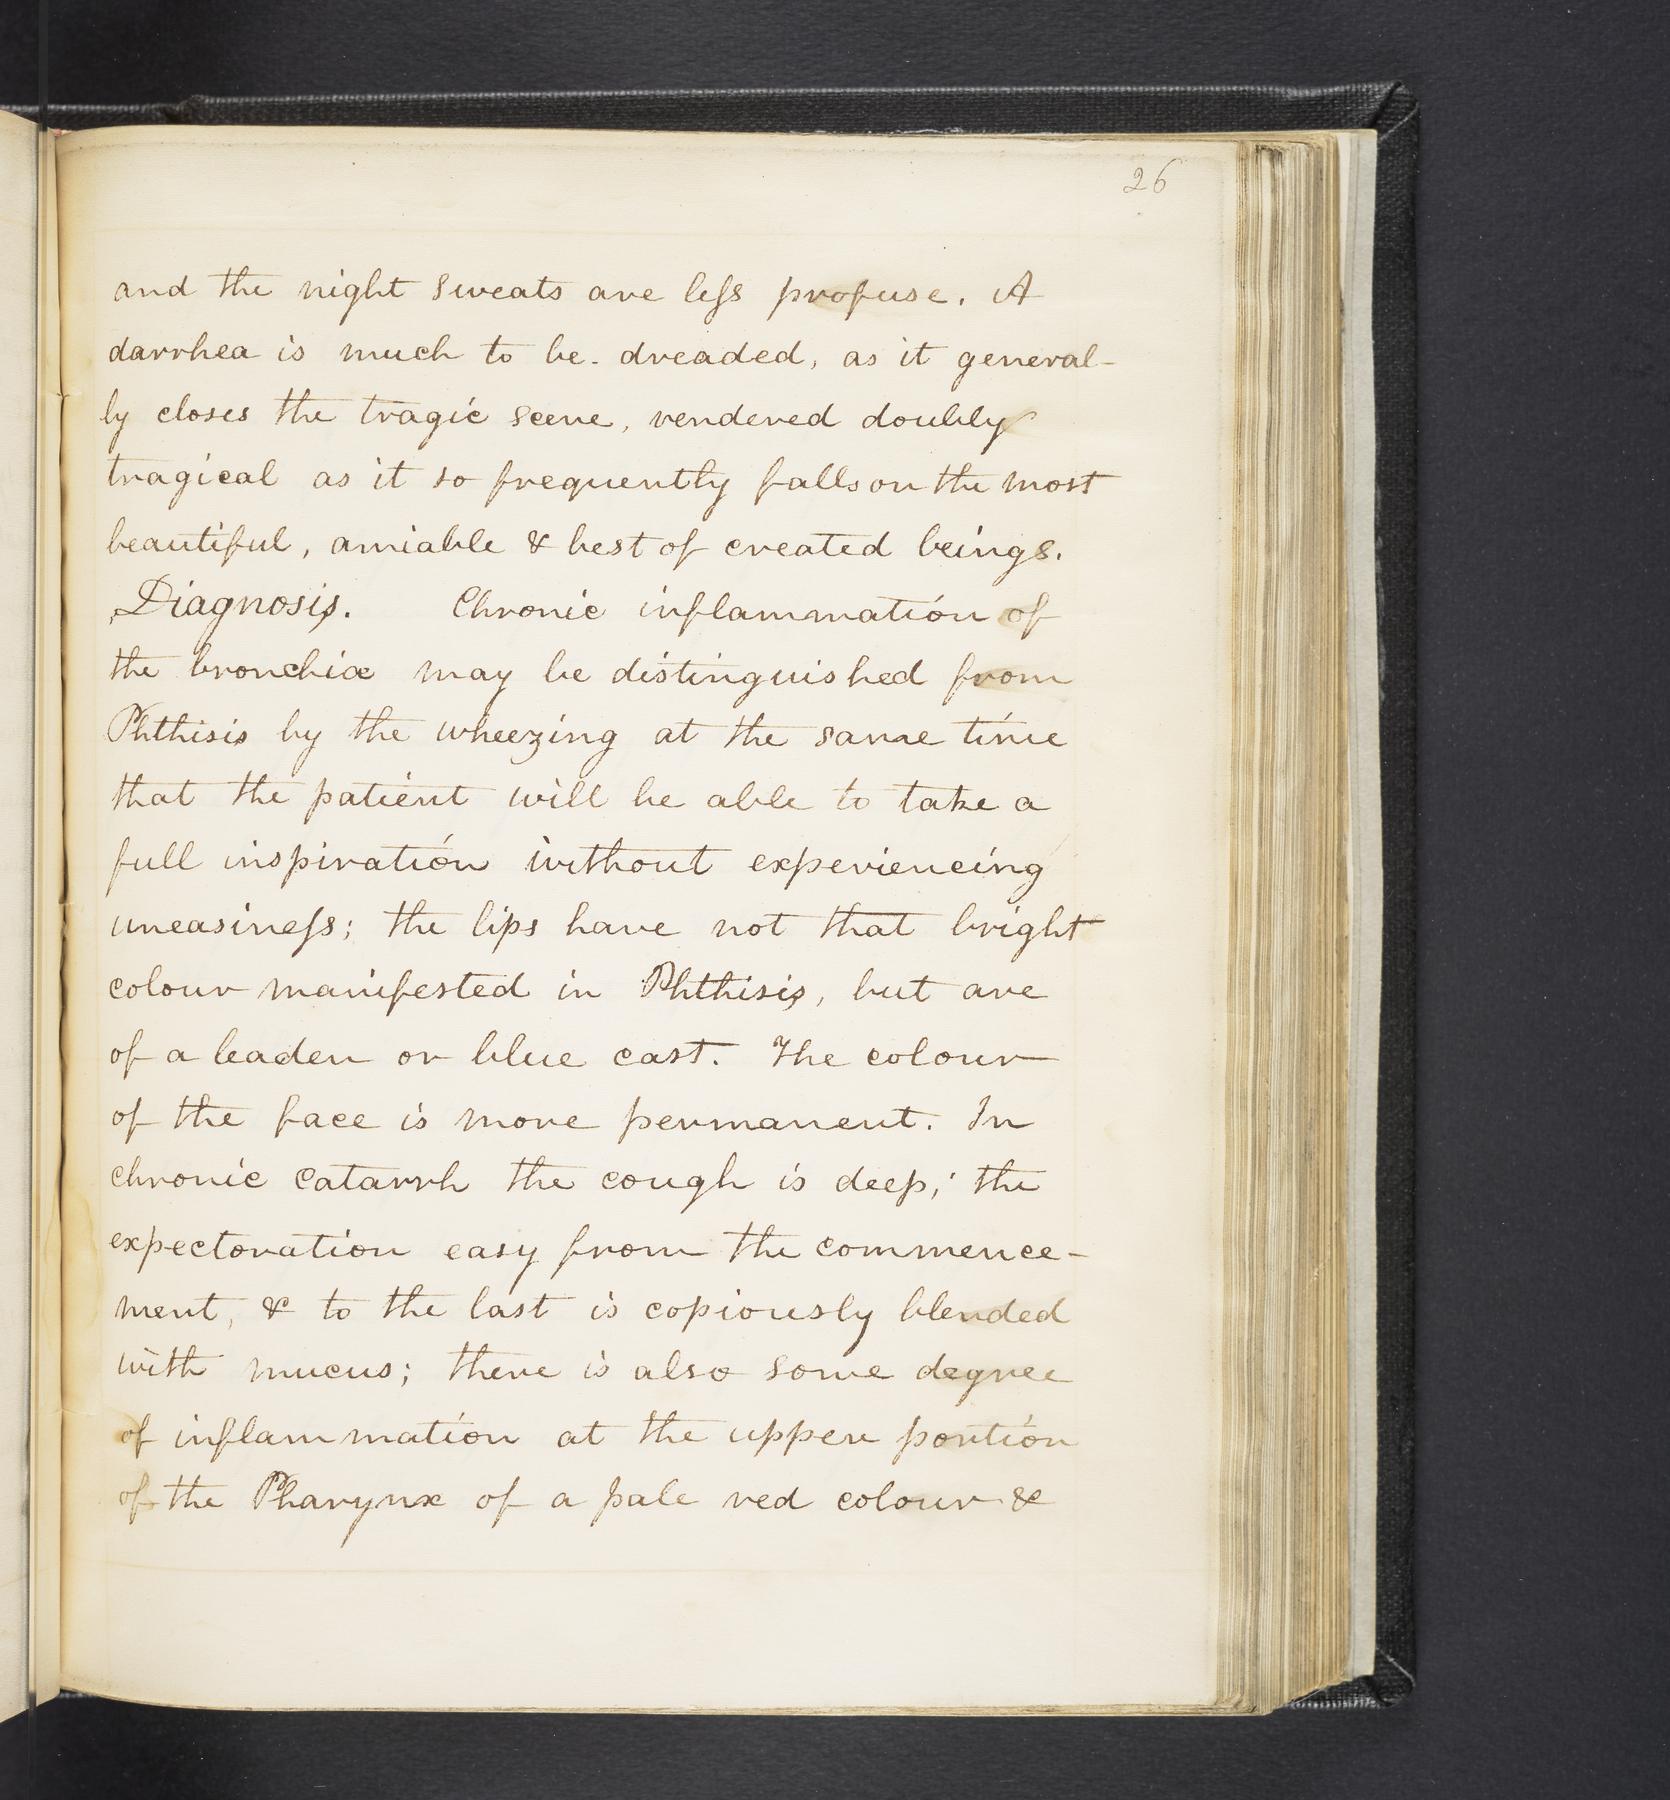 26
and the night sweats are leſs profuse. A
darrhea is much to be. dreaded, as it general-
ly closes the tragic scene, rendered doubly
tragical as it so frequently falls on the most
beautiful, amiable & best of created beings.
Diagnosis. Chronic inflammation of
the bronchiæ may be distinguished from
Phthisis by the wheezing at the same time
that the patient will be able to take a
full inspiration without experiencing
uneasineſs; the lips have not that bright
colour manifested in Phthisis, but are
of a leaden or blue cast. The colour
of the face is more permanent. In
chronic catarrh the cough is deep; the
expectoration easy from the commence-
ment, & to the last is copiously blended
with mucus; there is also some degree
of inflammation at the upper portion
of the Pharynx of a pale red colour &